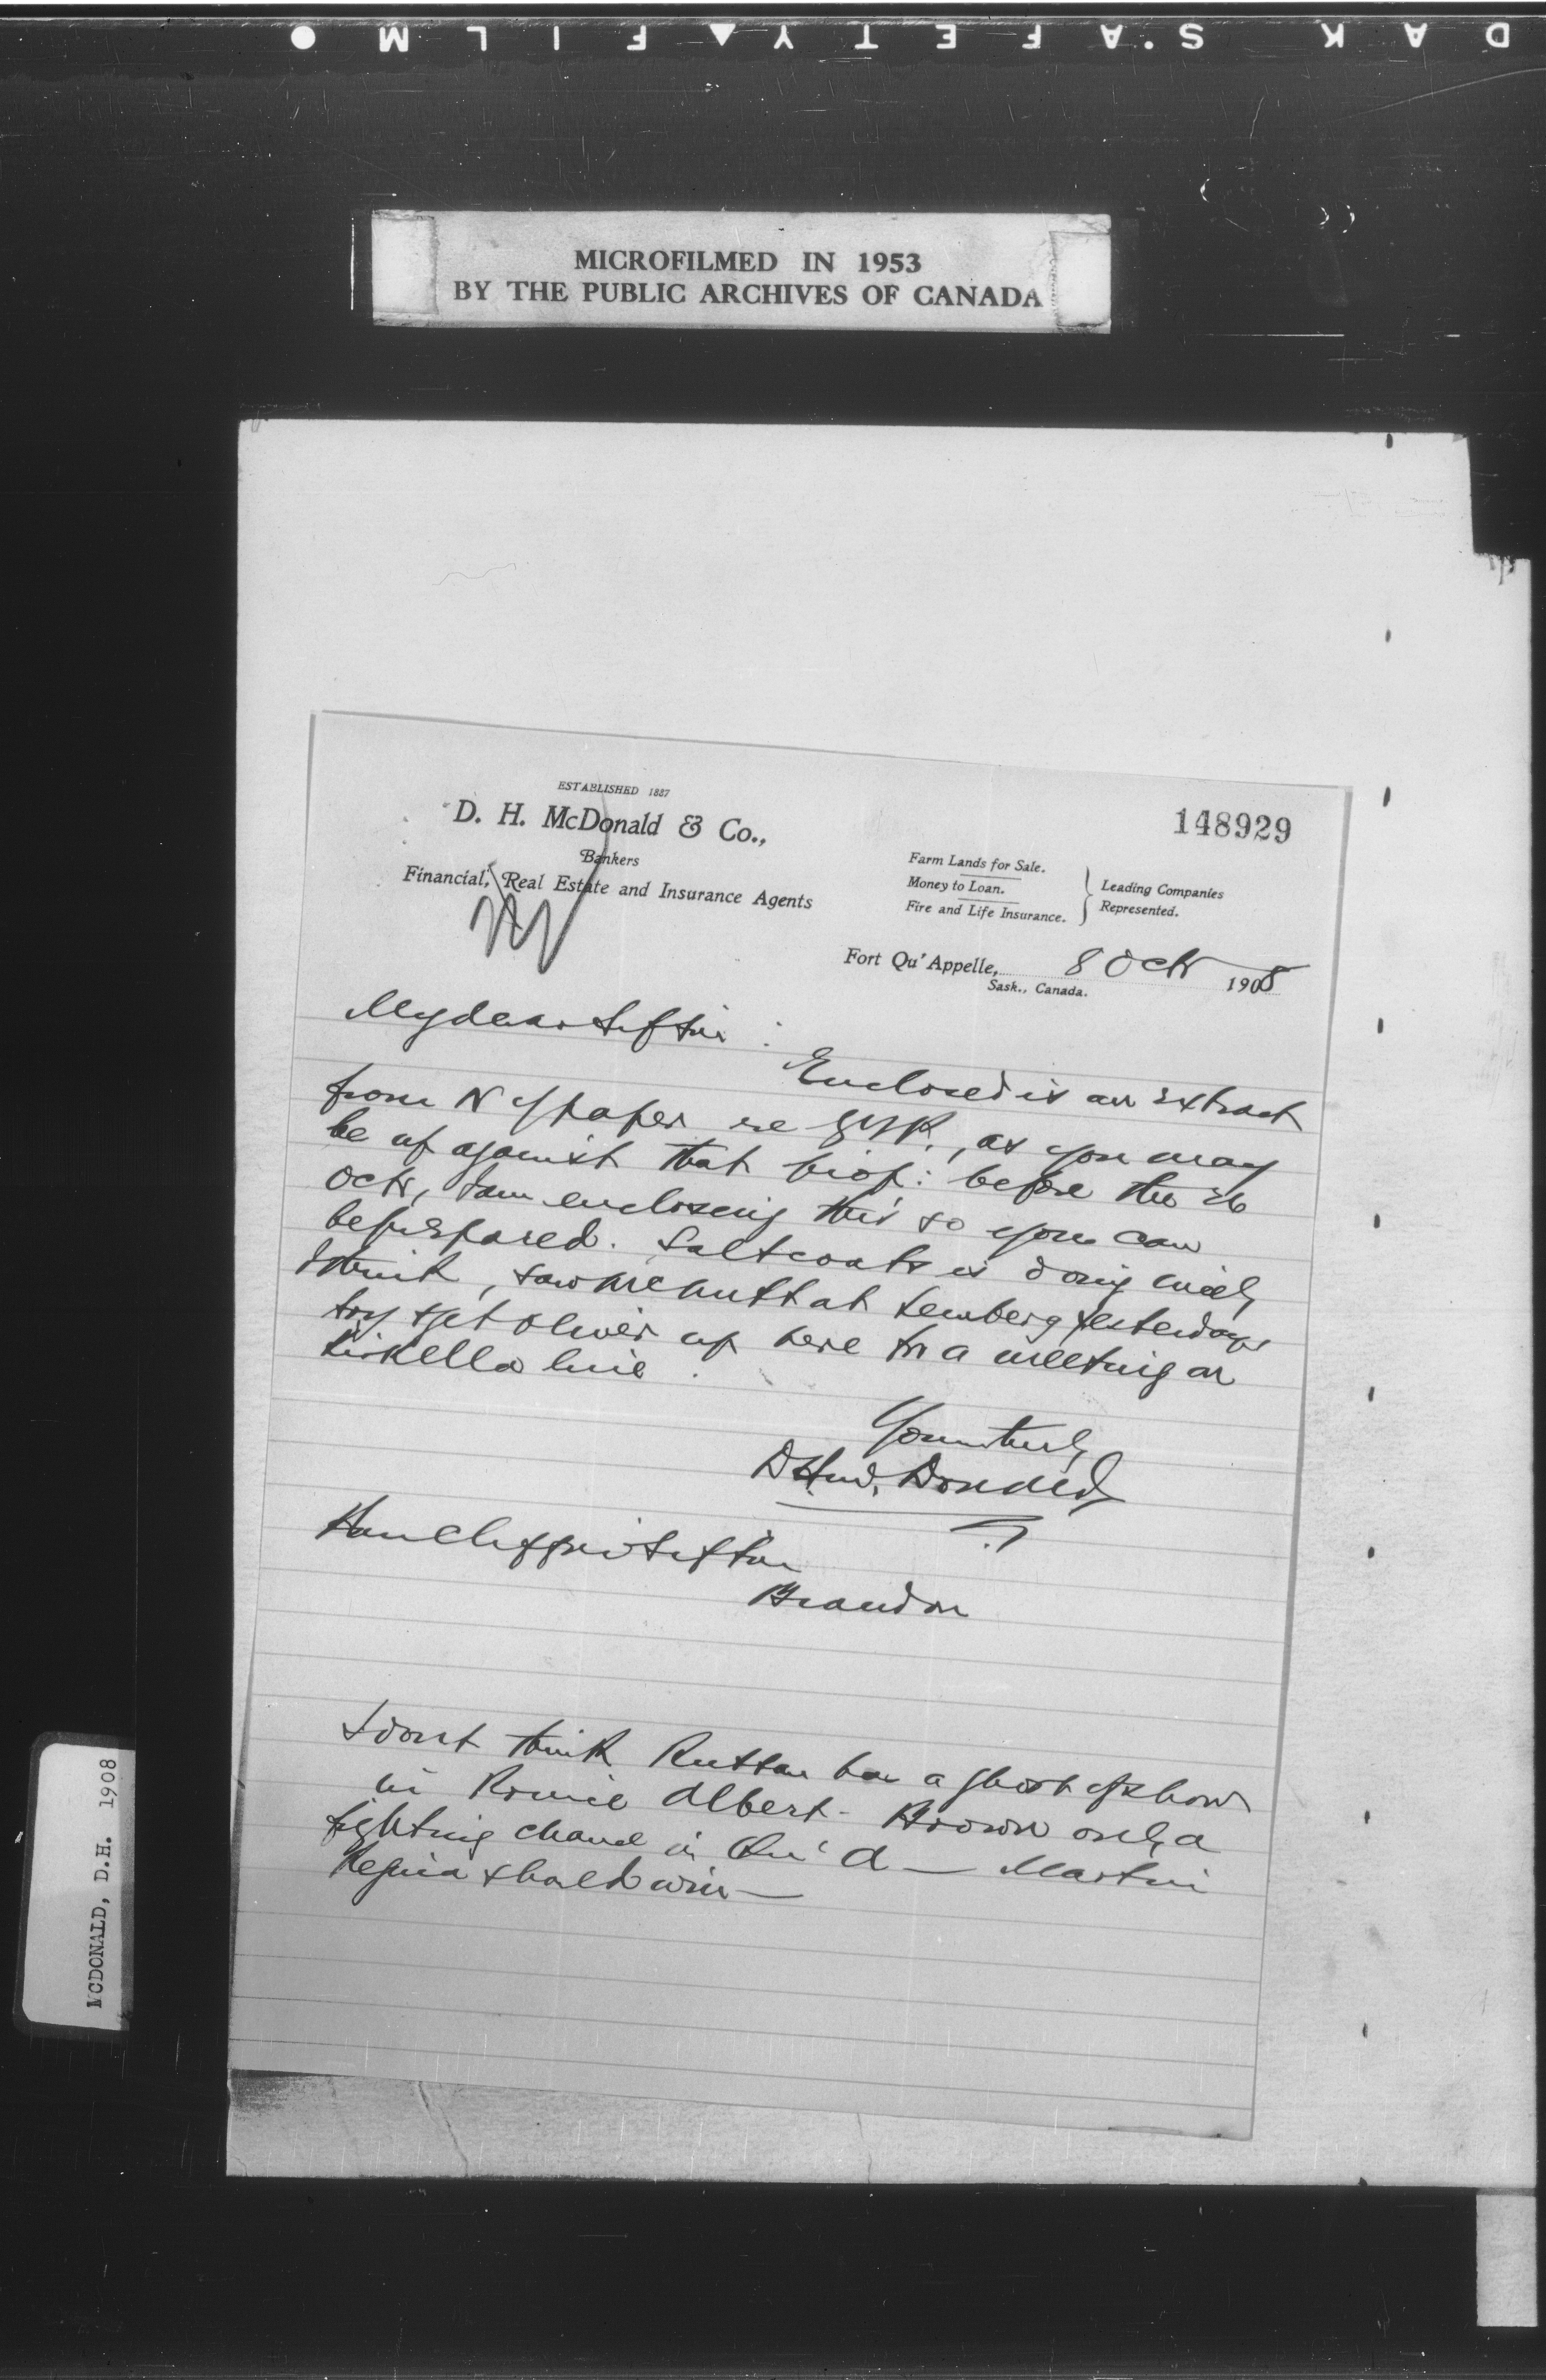 DAK S.AFETY▲FILM ●
MICROFILMED IN 1953
BY THE PUBLIC ARCHIVES OF CANADA
ESTABLISHED 1887
D. H. McDonald & Co.,
Bankers
Financial, Real Estate and Insurance Agents
148929
Farm Lands for Sale.
Money to Loan.
Fire and Life Insurance.
Leading Companies
Represented.
Fort Qu'Appelle, 8 Octr 1908
Sask., Canada.
My dear Sifton :
Enclosed is an extract
from N Y paper re GTP., as you may
be up against that prop: before the 26
Octr, I am enclosing this so you can
be prepared. Saltcoats is doing nicely
I think, saw McNutt at Lemberg yesterday,
try & get Oliver up here for a meeting on
Kirkella line.
Yours truly
D H McDonald
Hon Clifford Sifton
Brandon
I dont think Ruttan has a ghost of show
in Prince Albert - Brown only a
fighting chance in Qu'A — Martin
Regina should win —
MCDONALD, D.H. 1908